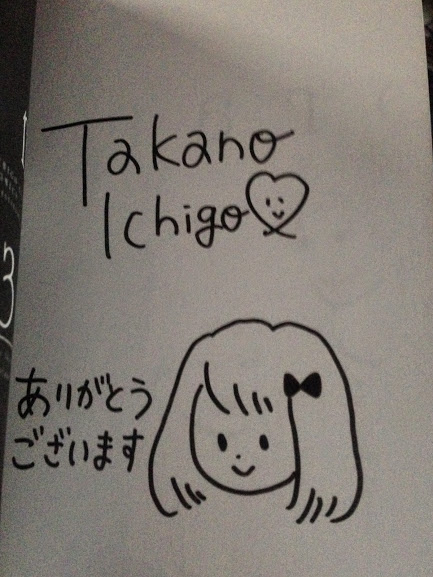 Takano
Ichigo
ありがとう
ございます
3